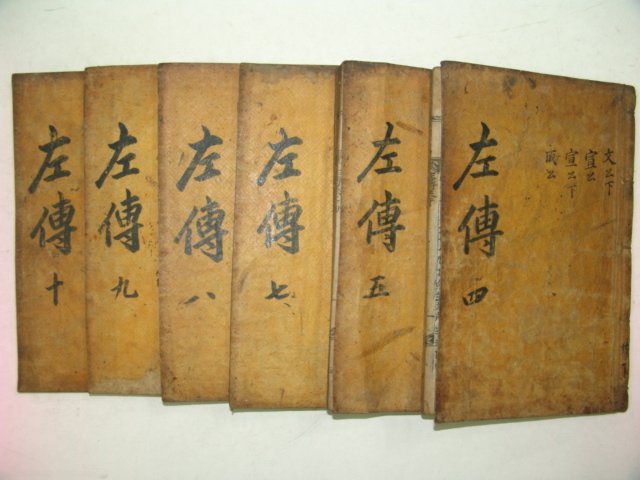 左傳 四
文公下
宣公
宣公下
左傳 五
左傳 七
左傳 八
左傳 九
左傳 十